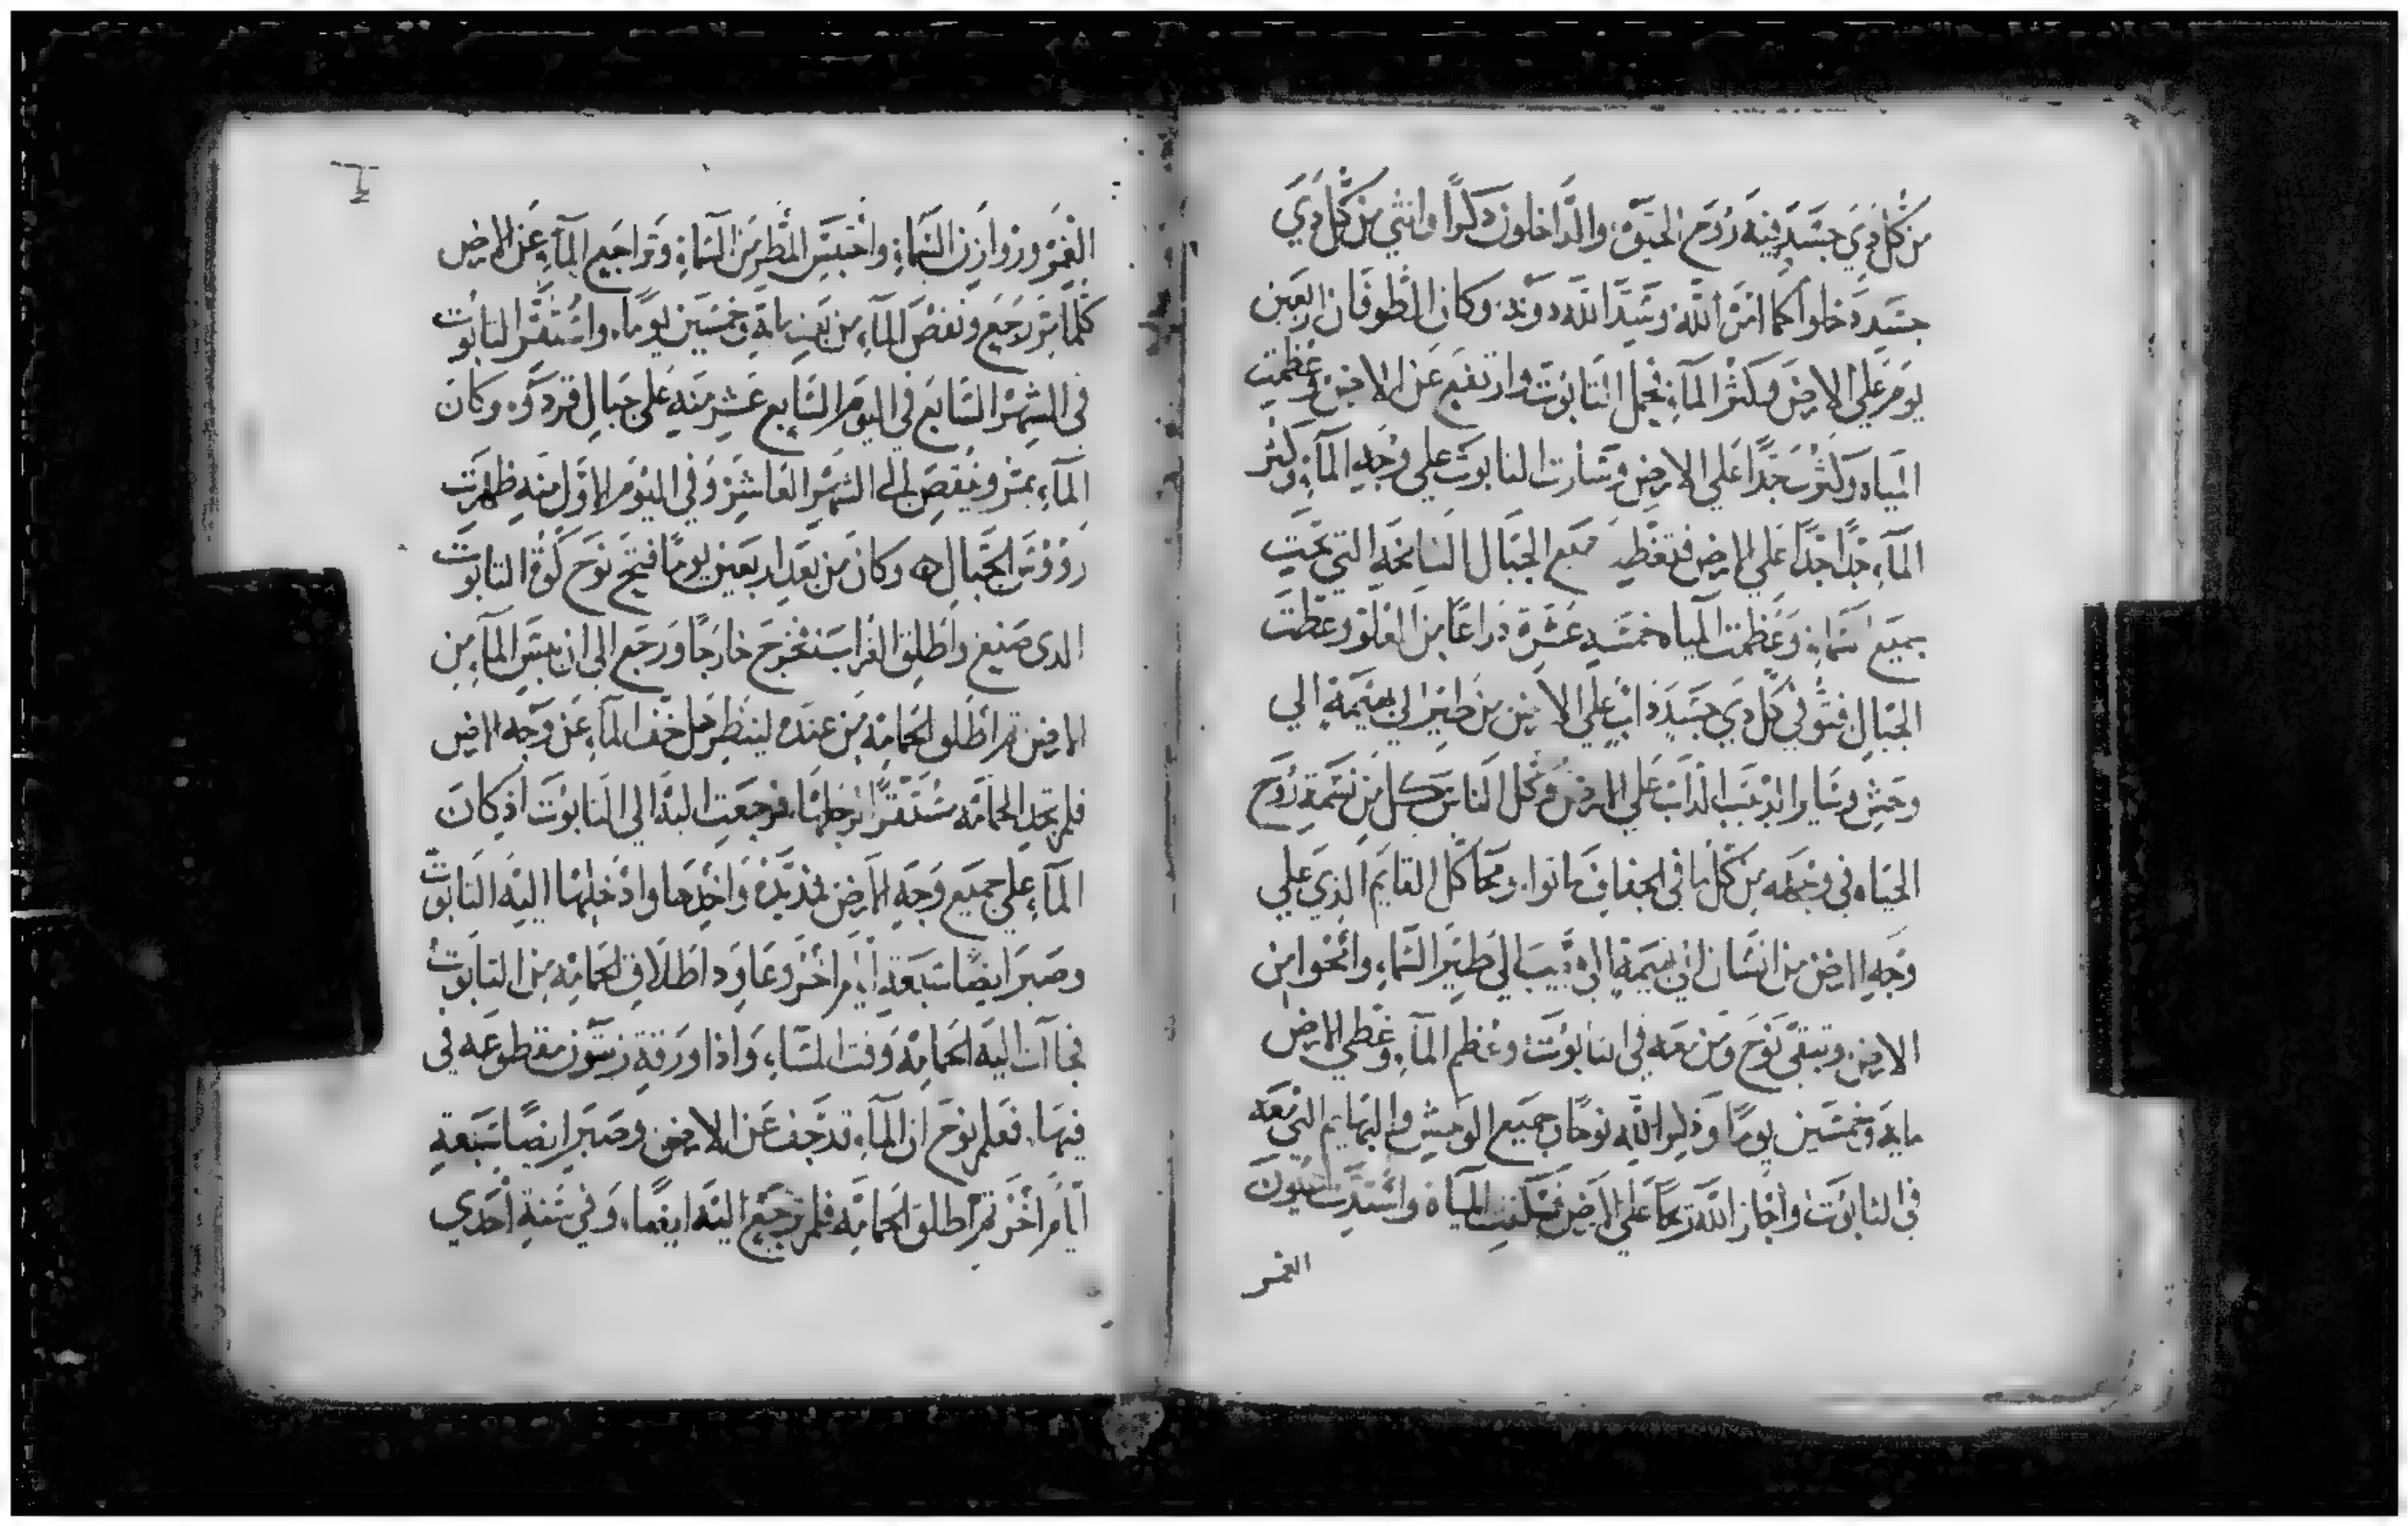 من كل ذي جسد فيه روح الحيوة والداخلون ذكرا وانثي من كل ذي
جسد دخلوا كما امر الله وسد الله دونه وكان الطوفان اربعين
يوم علي الارض وكثر الماء فحمل التابوت وارتفع عن الارض وعظمت
المياه وكثرت جدا علي الارض وسارت التابوت علي وجه الماء وكثر
الماء جدا جدا علي الارض فتغطي جميع الجبال الشامخة التي تحت
جميع السماء وعظمت المياه خمسه عشرة ذراعا من العلو وغطت
الجبال فتوفي كل ذي جسد داب علي الارض من طير الي بهيمة الي
وحش وساير الدبيب الداب علي الارض وكل الناس كل من نسمة روح
الحياه في وجهه من كل ما في الجفاف ماتوا ومحا كل القايم الذي علي
وجه الارض من انسان الي بهيمة الي دبيب الي طير السماء وانمحوا من
الارض وتبقي نوح ومن معه في التابوت وعظم الماء وغطي الارض
مايه وخمسين يوما وذكر الله نوحا وجميع الوحش والبهايم التي معه
في التابوت واجاز الله ريحا علي الارض فسكنت المياه واستدت عيون
الغمر
الغمر وروازن السماء واحتبس المطر من السماء وتراجع الماء عن الارض
كلما مر رجع ونقص الماء من بعد مايه وخمسين يوما، واستقر التابوت
في الشهر السابع في اليوم السابع عشر منه علي جبال قردوه وكان
الماء يمر وينقص الي الشهر العاشر وفي اليوم الاول منه ظهرت
رؤوس الجبال ه وكان من بعد اربعين يوما فتح نوح كوة التابوت
الدى صنع واطلق الغراب فخرج خارجا ورجع الي ان يبس الماء من
الارض ثم اطلق الحمامة من عنده لينظر هل خف الماء عن وجه الارض
فلم تجد الحمامه مستقرا لرجلها فرجعت اليه الي التابوت اذ كان
الماء علي جميع وجه الارض فمد يده واخذها وادخلها اليه التابوت
وصبر ايضا سبعة ايام اخر وعاود اطلاق الحمامة من التابوت
فجاات اليه الحمامة وقت المساء، واذا ورقة زيتون مقطوعه في
فيها، فعلم نوح ان الماء قد جف عن الارض وصبر ايضا سبعة
ايام اخر ثم اطلق الحمامة فلم ترجع اليه ايضا، وفي سنة احدي